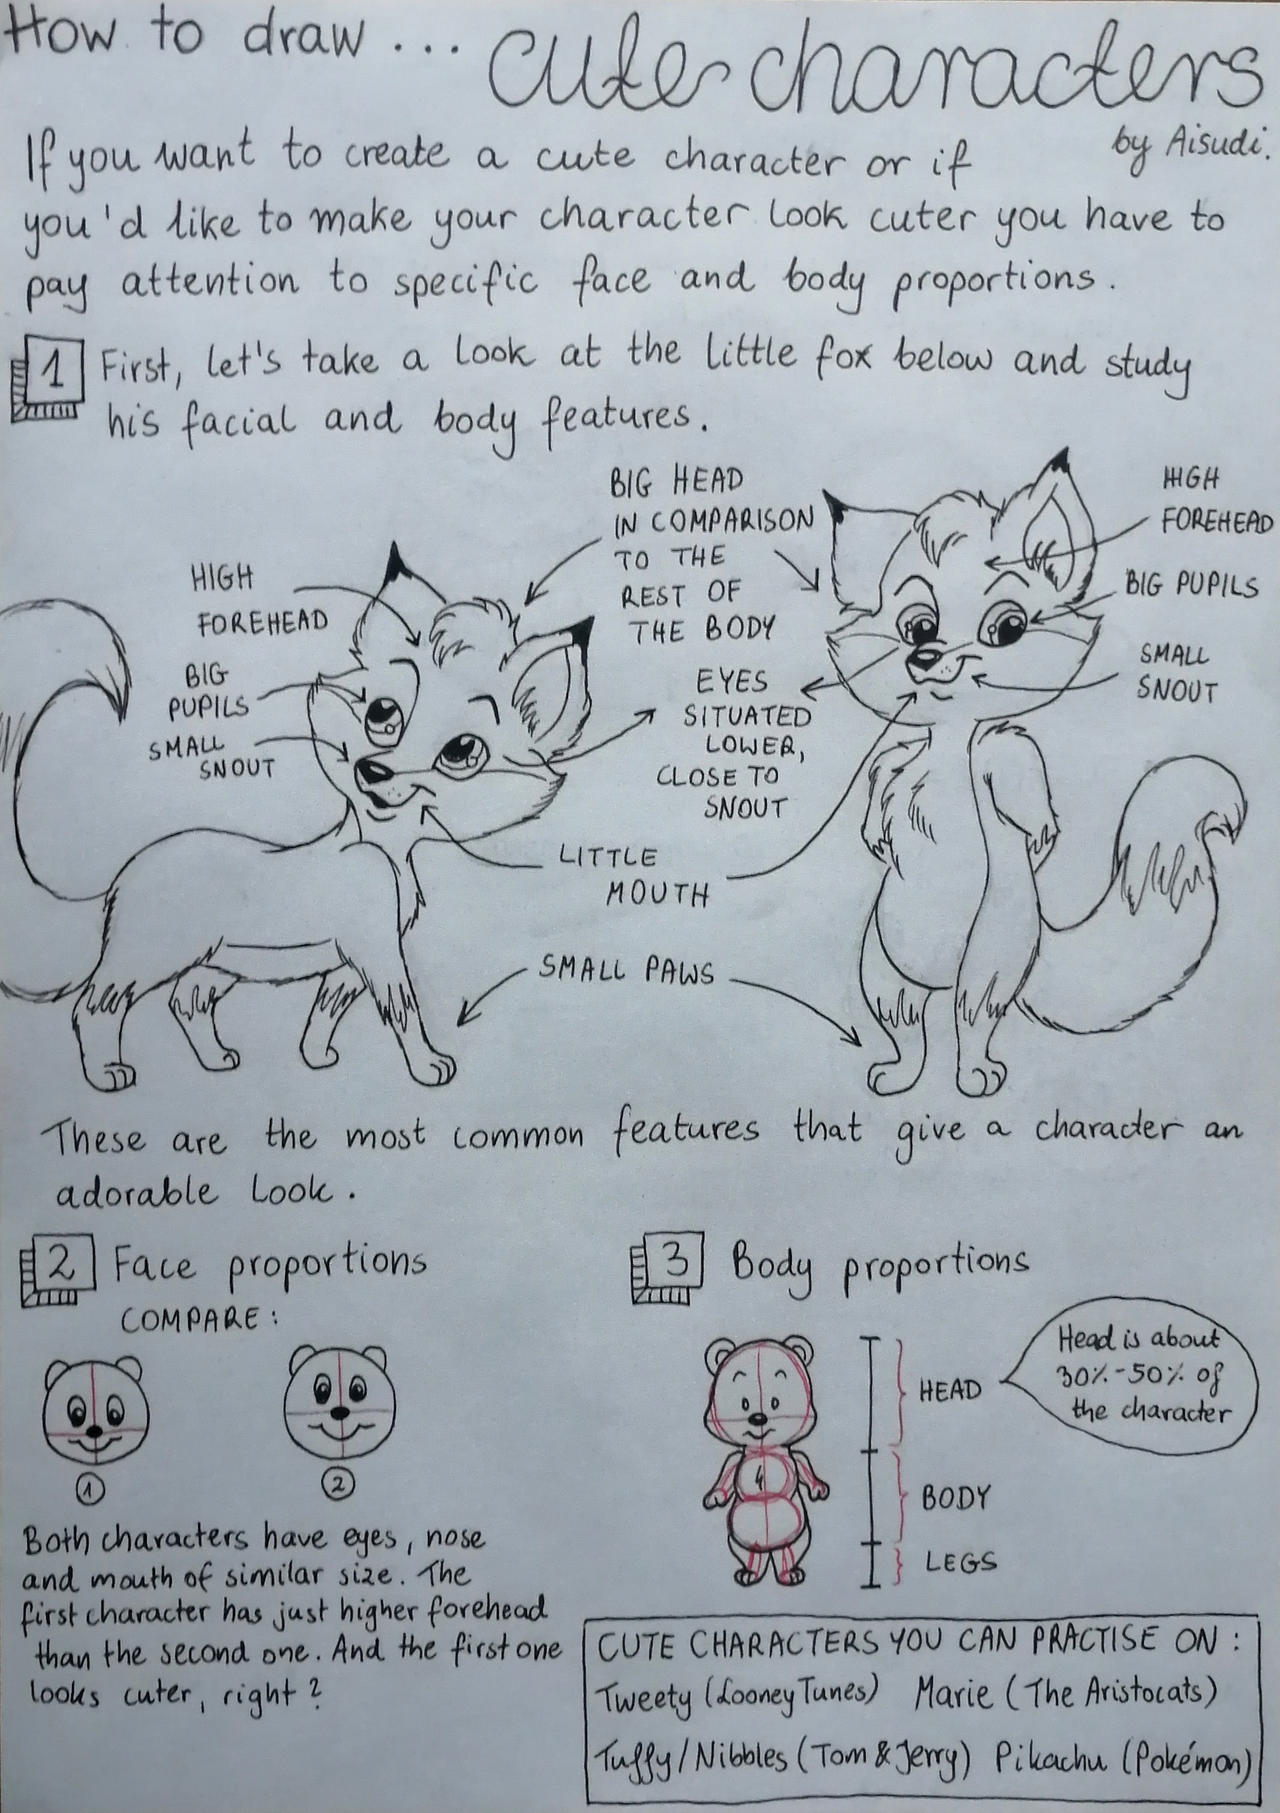 How to draw... cute characters
by Aisudi.
If you want to create a cute character or if
you'd like to make your character look cuter you have to
pay attention to specific face and body proportions.
1 First, let's take a look at the little fox below and study
his facial and body features.
HIGH
FOREHEAD
BIG
PUPILS
SMALL
SNOUT
BIG HEAD
IN COMPARISON
TO THE
REST OF
THE BODY
EYES
SITUATED
LOWER,
CLOSE TO
SNOUT
HIGH
FOREHEAD
BIG PUPILS
SMALL
SNOUT
LITTLE
MOUTH
SMALL PAWS
These are the most common features that give a character an
adorable look.
2 Face proportions
COMPARE:
1
2
Both characters have eyes, nose
and mouth of similar size. The
first character has just higher forehead
than the second one. And the first one
looks cuter, right?
3 Body proportions
HEAD
Head is about
30%-50% of
the character
BODY
LEGS
CUTE CHARACTERS YOU CAN PRACTISE ON:
Tweety (Looney Tunes) Marie (The Aristocats)
Tuffy/Nibbles (Tom & Jerry) Pikachu (Pokémon)